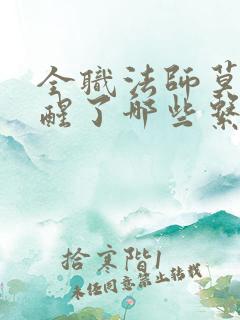 全職法師莫
醒了那些繫
拾寒階1
未经同意禁止转载